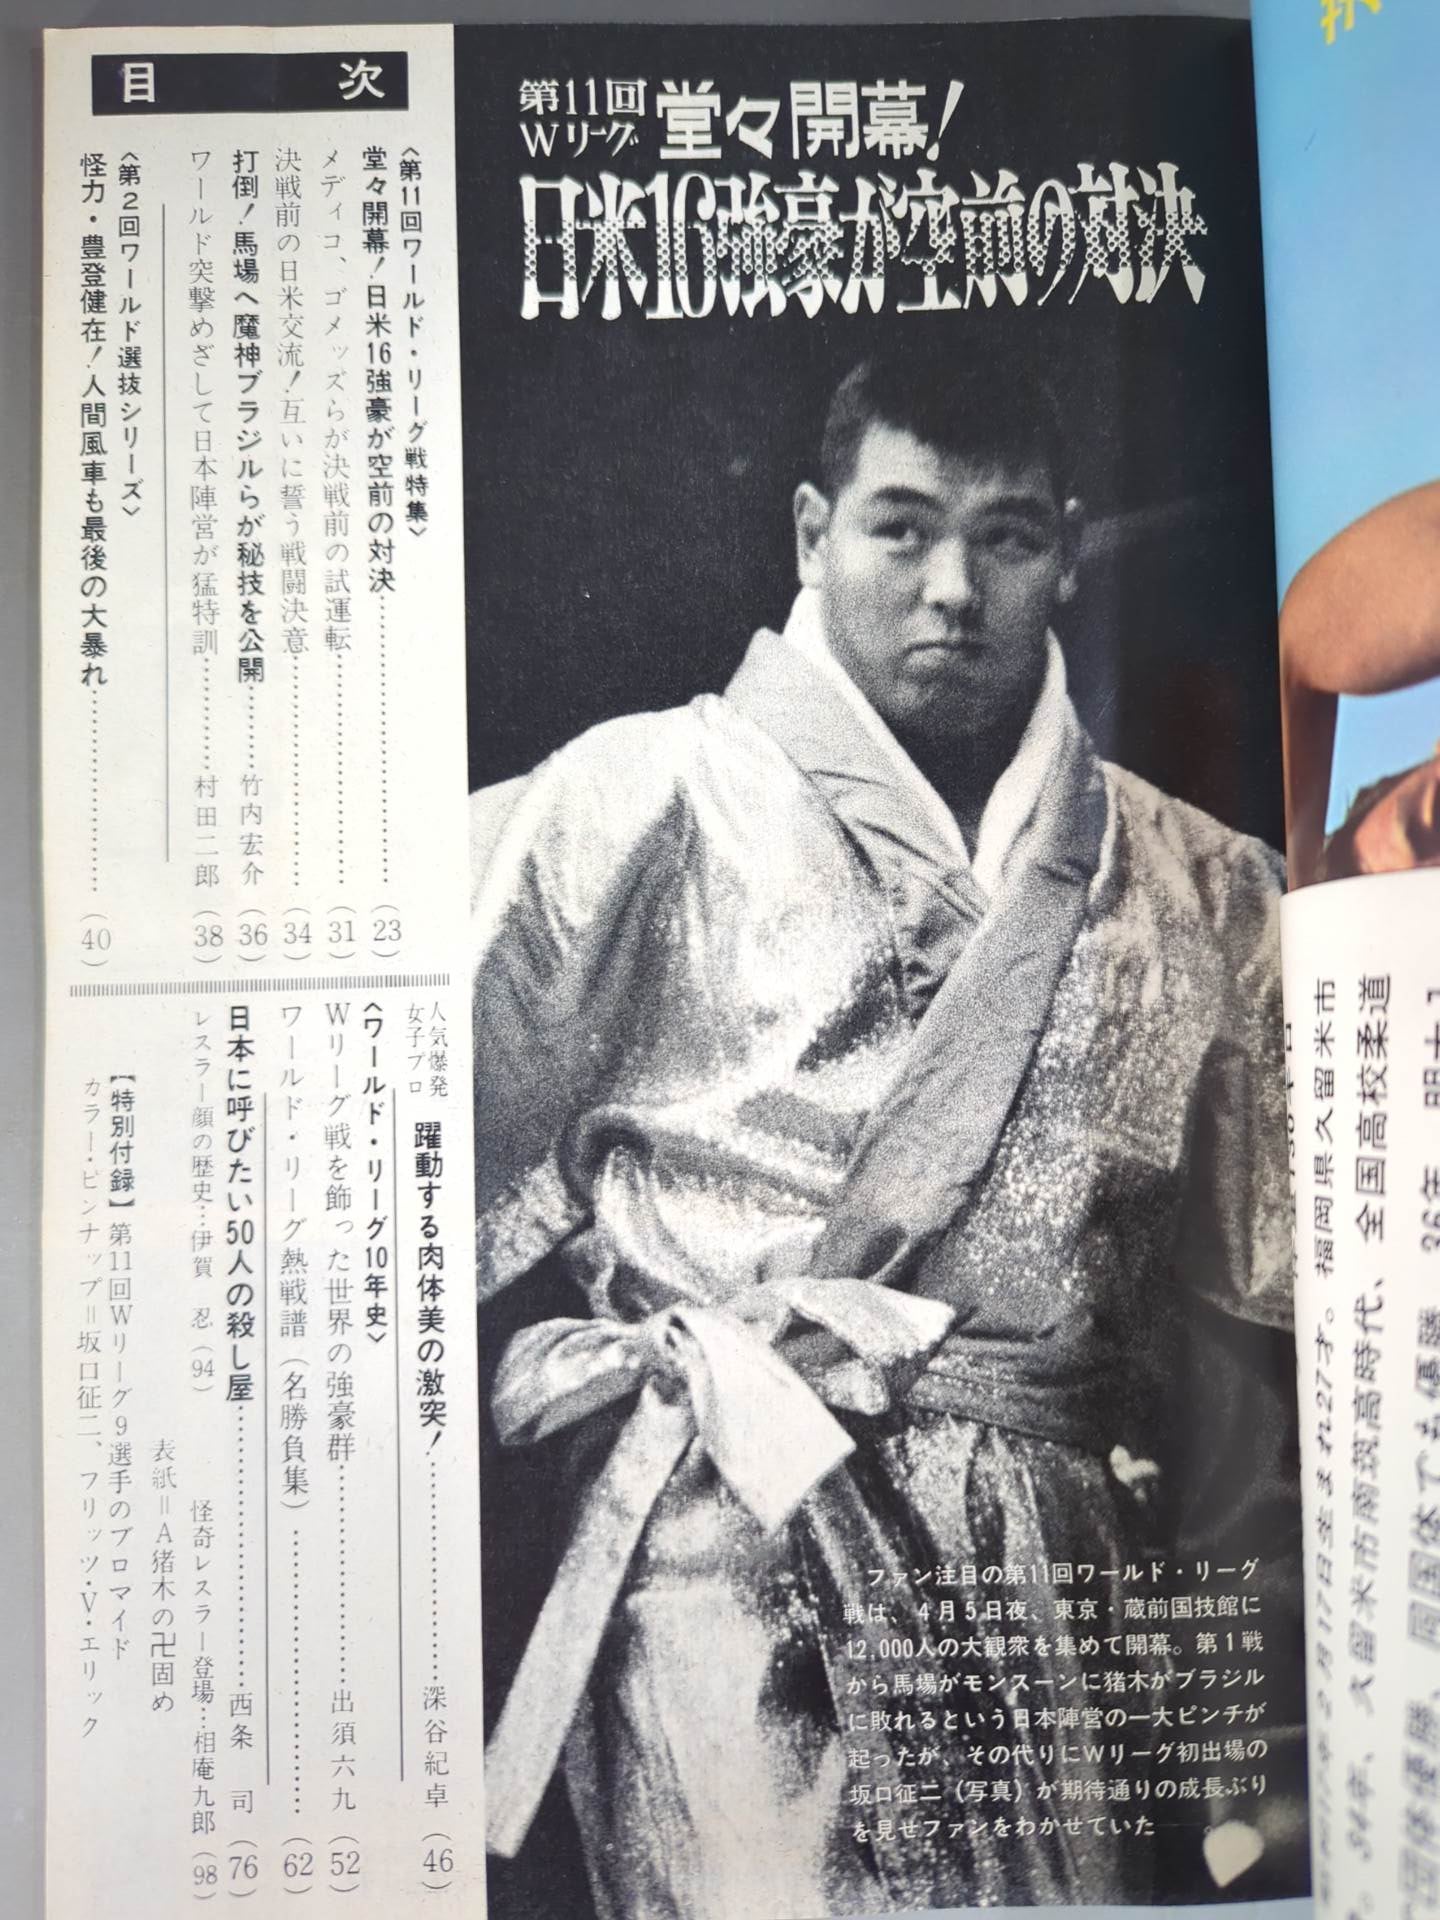 目次
〈第11回ワールド・リーグ戦特集〉
堂々開幕！日米16強豪が空前の対決…………(23)
メディコ、ゴメッズらが決戦前の試運転…………(31)
決戦前の日米交流！互いに誓う戦闘決意…………(34)
打倒！馬場へ魔神ブラジルらが秘技を公開……竹内宏介(36)
ワールド突撃めざして日本陣営が猛特訓……村田二郎(38)
〈第2回ワールド選抜シリーズ〉
怪力・豊登健在！人間風車も最後の大暴れ…………(40)
人気爆発
女子プロ
躍動する肉体美の激突！…………深谷紀卓(46)
〈ワールド・リーグ10年史〉
Wリーグ戦を飾った世界の強豪群…………出須六九(52)
ワールド・リーグ熱戦譜（名勝負集）…………(62)
日本に呼びたい50人の殺し屋…………西条　司(76)
レスラー顔の歴史…伊賀　忍(94)
怪奇レスラー登場…相庵九郎(98)
表紙＝A猪木の卍固め
【特別付録】第11回Wリーグ9選手のブロマイド
カラー・ピンナップ＝坂口征二、フリッツ・V・エリック
第11回
Wリーグ
堂々開幕！
日米16強豪が空前の対決
ファン注目の第11回ワールド・リーグ
戦は、4月5日夜、東京・蔵前国技館に
12,000人の大観衆を集めて開幕。第1戦
から馬場がモンスーンに猪木がブラジル
に敗れるという日本陣営の一大ピンチが
起ったが、その代りにWリーグ初出場の
坂口征二（写真）が期待通りの成長ぶり
を見せファンをわかせていた――。
月17日生まれ27才。福岡県久留米市
34年、久留米市南筑高時代、全国高校柔道
団体優勝、同国体でも優勝、36年、明大1